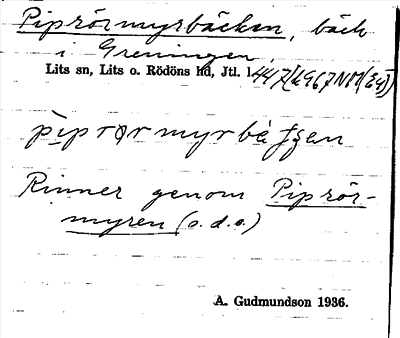 Piprörmyrbäcken, bäck
i Greningen,
Lits sn, Lits o. Rödöns hd, Jtl. l.
pìprørmyrbè
Rinner genom Piprör-
myren (s.d.o.)
A. Gudmundson 1936.